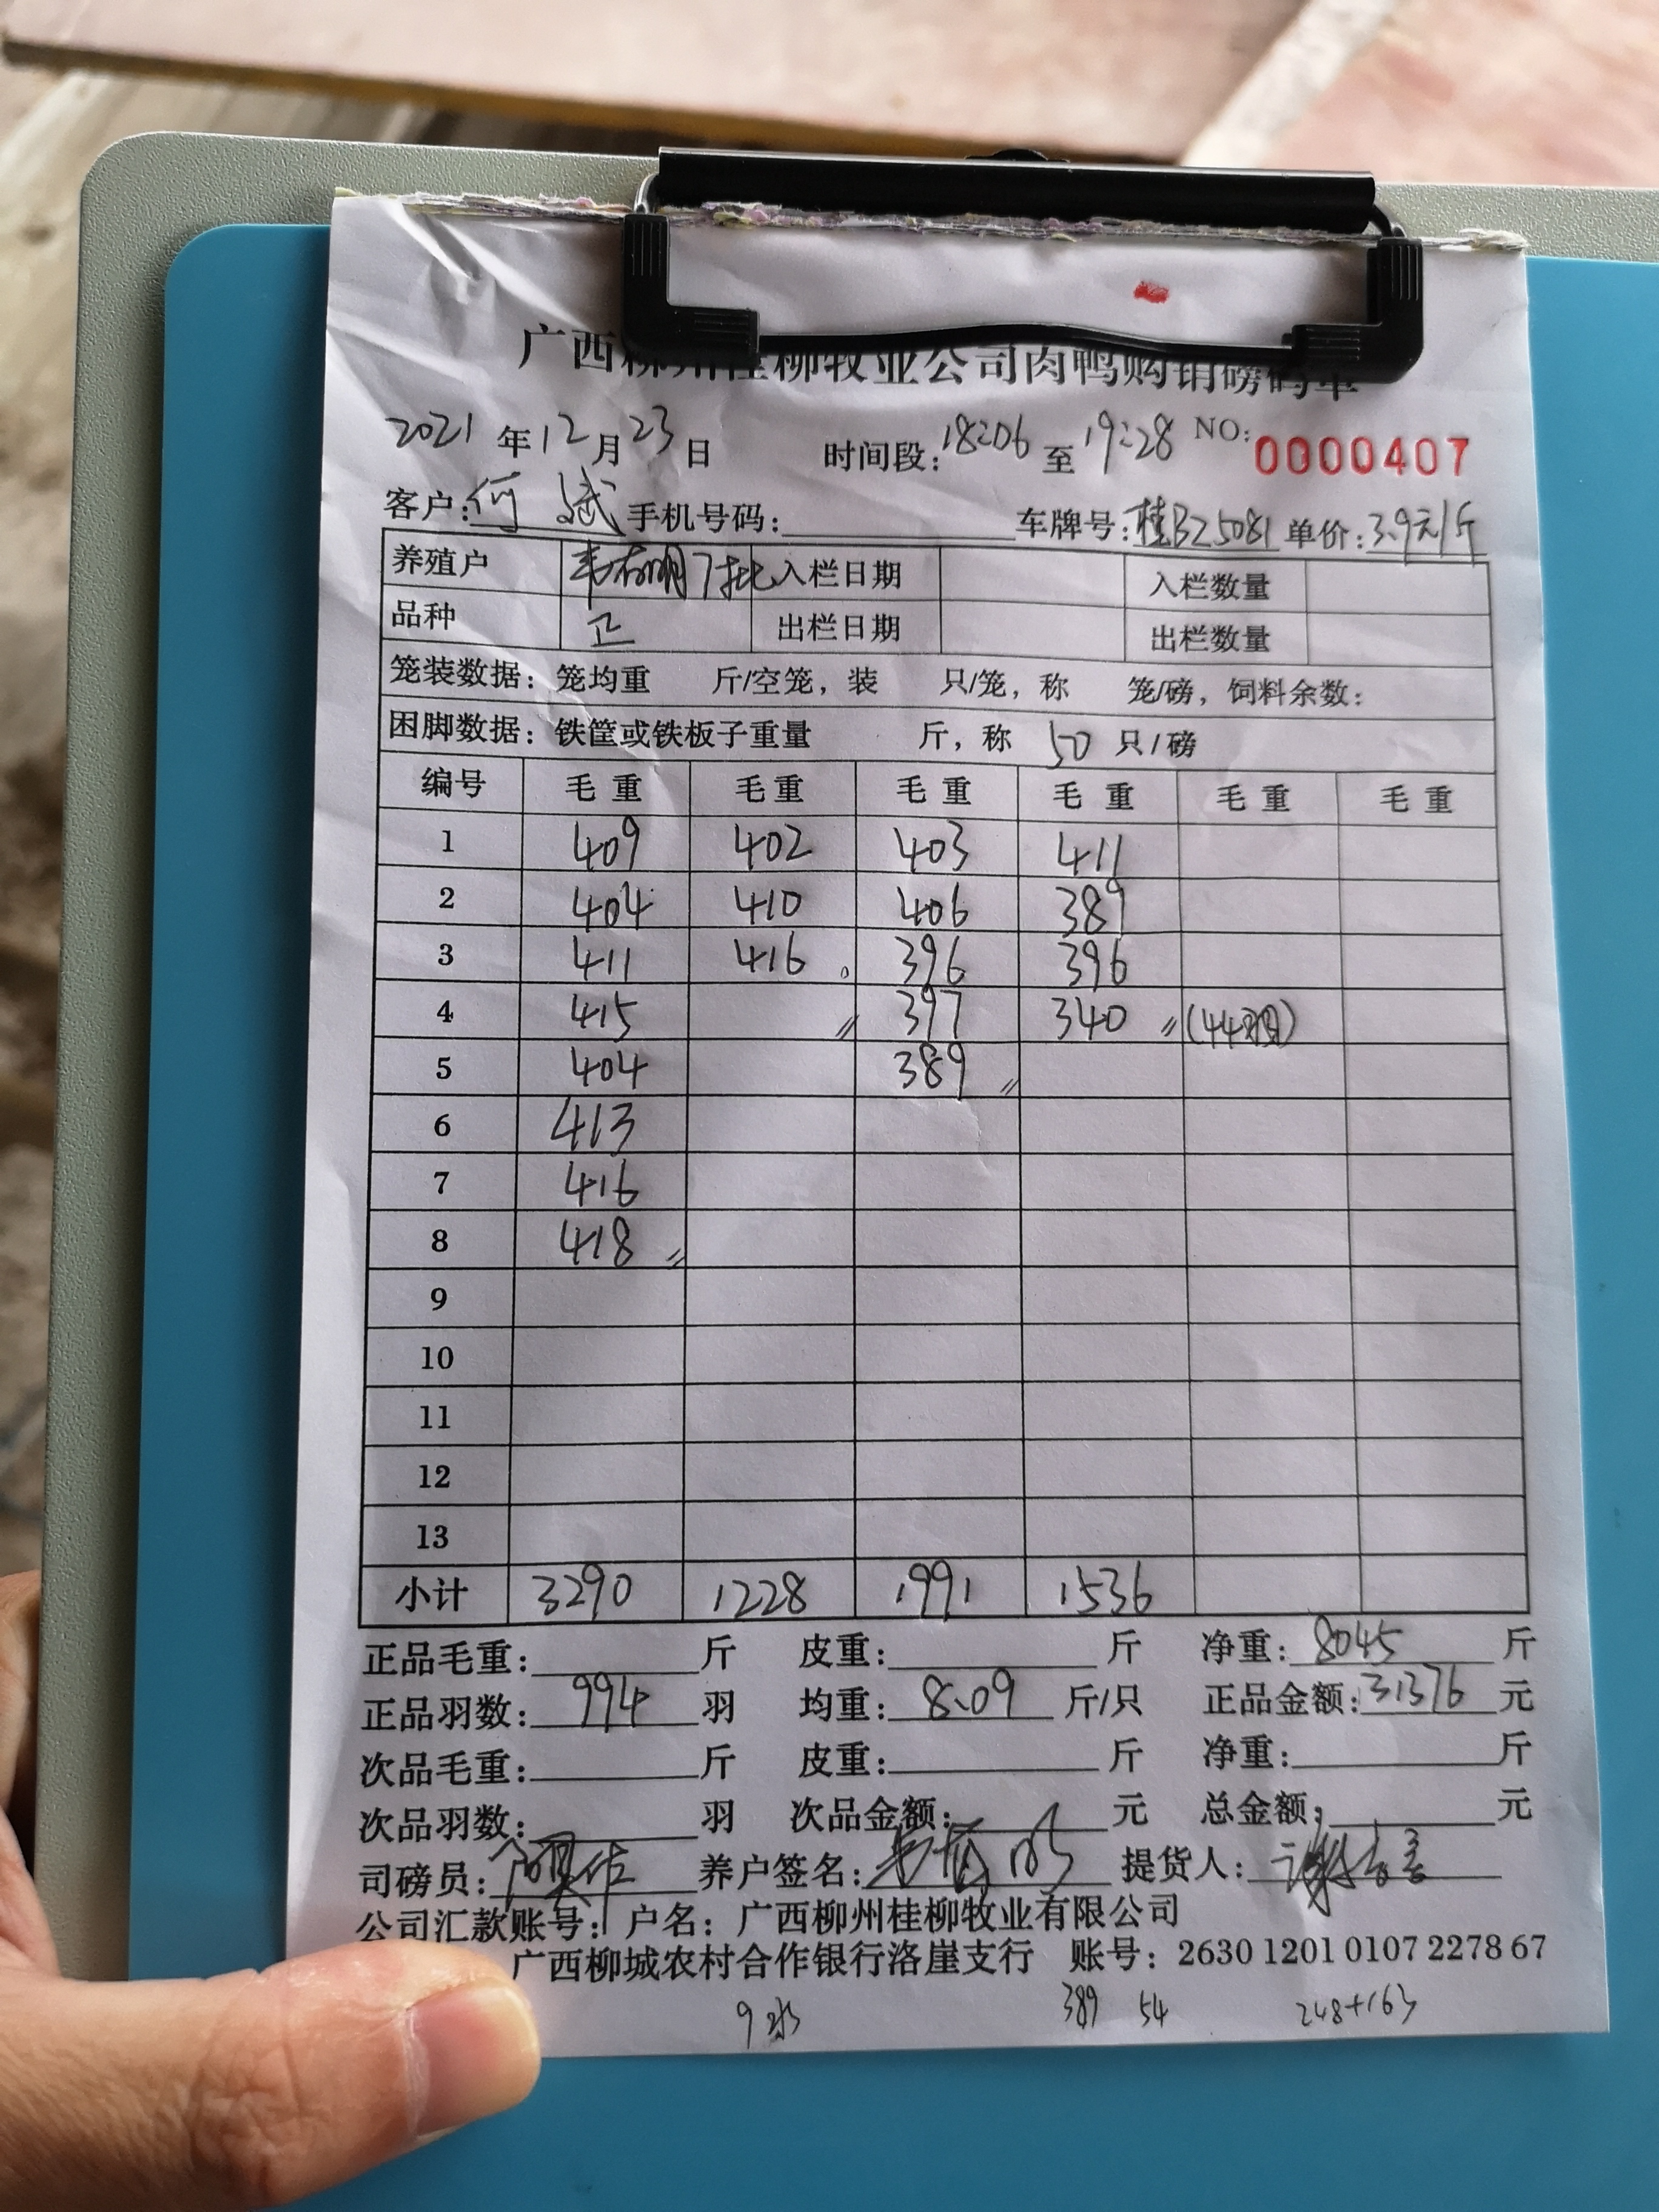 广西柳州桂柳牧业公司肉鸭购销磅码单
2021年12月23日 时间段:18:06至19:28 NO:0000407
客户:何斌 手机号码: 车牌号:桂BZ5081 单价:3.9元/斤
养殖户 韦有明7批 入栏日期 入栏数量
品种 卫 出栏日期 出栏数量
笼装数据:笼均重 斤/空笼,装 只/笼,称 笼/磅,饲料余数:
困脚数据:铁筐或铁板子重量 斤,称 50 只/磅
编号 毛重 毛重 毛重 毛重 毛重 毛重
1 409 402 403 411
2 404 410 406 389
3 411 416 396 396
4 415 397 340 (44羽)
5 404 389
6 413
7 416
8 418
9
10
11
12
13
小计 3290 1228 1991 1536
正品毛重: 斤 皮重: 斤 净重:8045斤
正品羽数:994羽 均重:8.09斤/只 正品金额:31376元
次品毛重: 斤 皮重: 斤 净重: 斤
次品羽数: 羽 次品金额: 元 总金额: 元
司磅员: 养户签名:韦有明 提货人:
公司汇款账号:户名:广西柳州桂柳牧业有限公司
广西柳城农村合作银行洛崖支行 账号:2630 1201 0107 2278 67
9 389 54 248+163